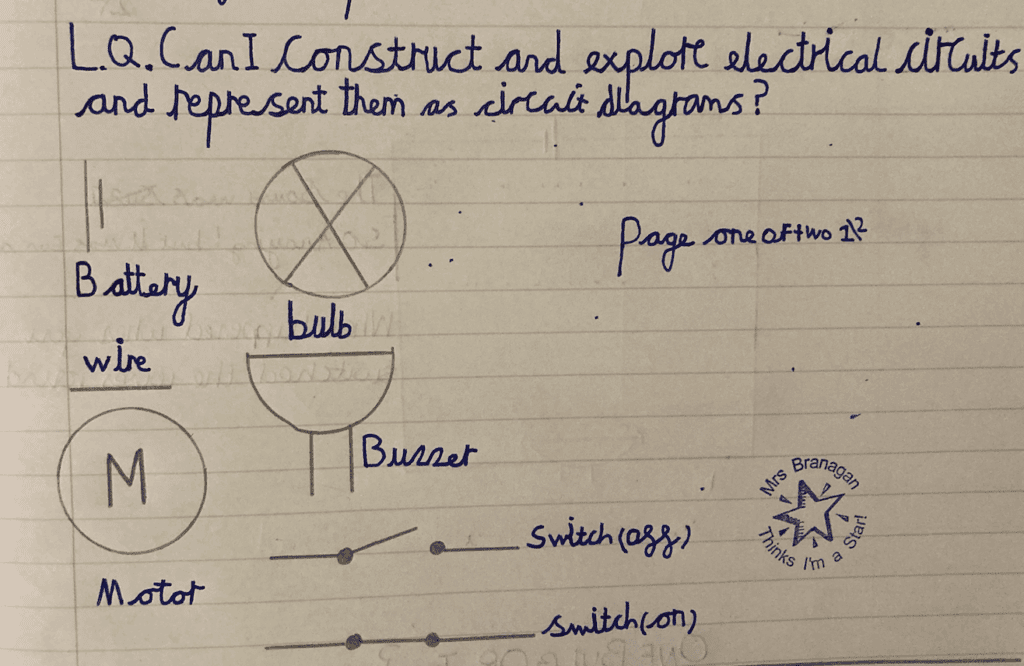 L.Q. Can I construct and explore electrical circuits
and represent them as circuit diagrams?
Page one of two 1\2
Battery
bulb
wire
M
Buzzer
Motor
Switch (off)
switch (on)
Mrs Branagan
Thinks I'm a Star!